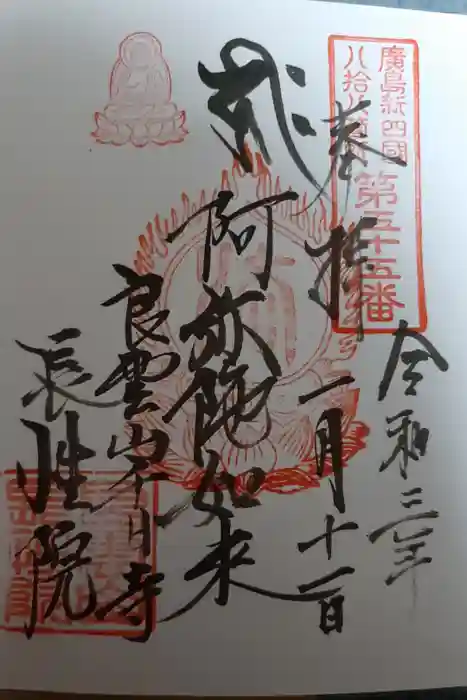 廣島新四國
八拾八
第五十五番
奉拝
令和三年
一月十一日
阿弥陀如来
良雲山
日寺
長性院